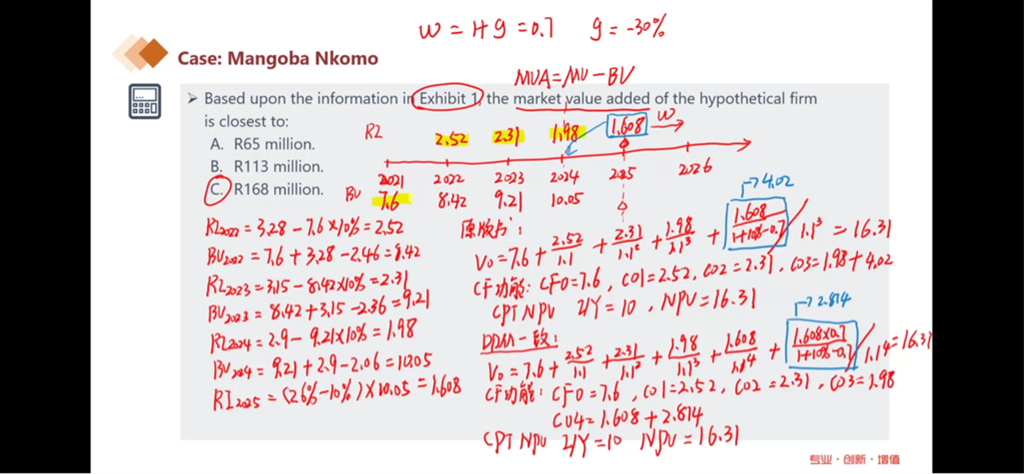 W = 1+g = 0.7   g = -30%
Case: Mangoba Nkomo
MVA = MV - BV
➢ Based upon the information in Exhibit 1, the market value added of the hypothetical firm
is closest to:
A. R65 million.
B. R113 million.
C. R168 million.
RI 2.52 2.31 1.98 1.608 W
2021 2022 2023 2024 2025 2026
BV 7.6 8.42 9.21 10.05
RI2022 = 3.28 - 7.6×10% = 2.52
BV2022 = 7.6 + 3.28 - 2.46 = 8.42
RI2023 = 3.15 - 8.42×10% = 2.31
BV2023 = 8.42 + 3.15 - 2.36 = 9.21
RI2024 = 2.9 - 9.21×10% = 1.98
BV2024 = 9.21 + 2.9 - 2.06 = 10.05
RI2025 = (26% - 10%)×10.05 = 1.608
原版书:
→4.02
V0 = 7.6 + 2.52/1.1 + 2.31/1.1² + 1.98/1.1³ + 1.608/1+10%-0.7 / 1.1³ = 16.31
CF功能: CF0=7.6, C01=2.52, C02=2.31, C03=1.98+4.02
CPT NPV I/Y=10, NPV=16.31
DDM一致:
→2.814
V0 = 7.6 + 2.52/1.1 + 2.31/1.1² + 1.98/1.1³ + 1.608/1.1⁴ + 1.608×0.7/1+10%-0.7 / 1.1⁴ = 16.31
CF功能: CF0=7.6, C01=2.52, C02=2.31, C03=1.98
C04=1.608+2.814
CPT NPV I/Y=10 NPV=16.31
专业·创新·增值